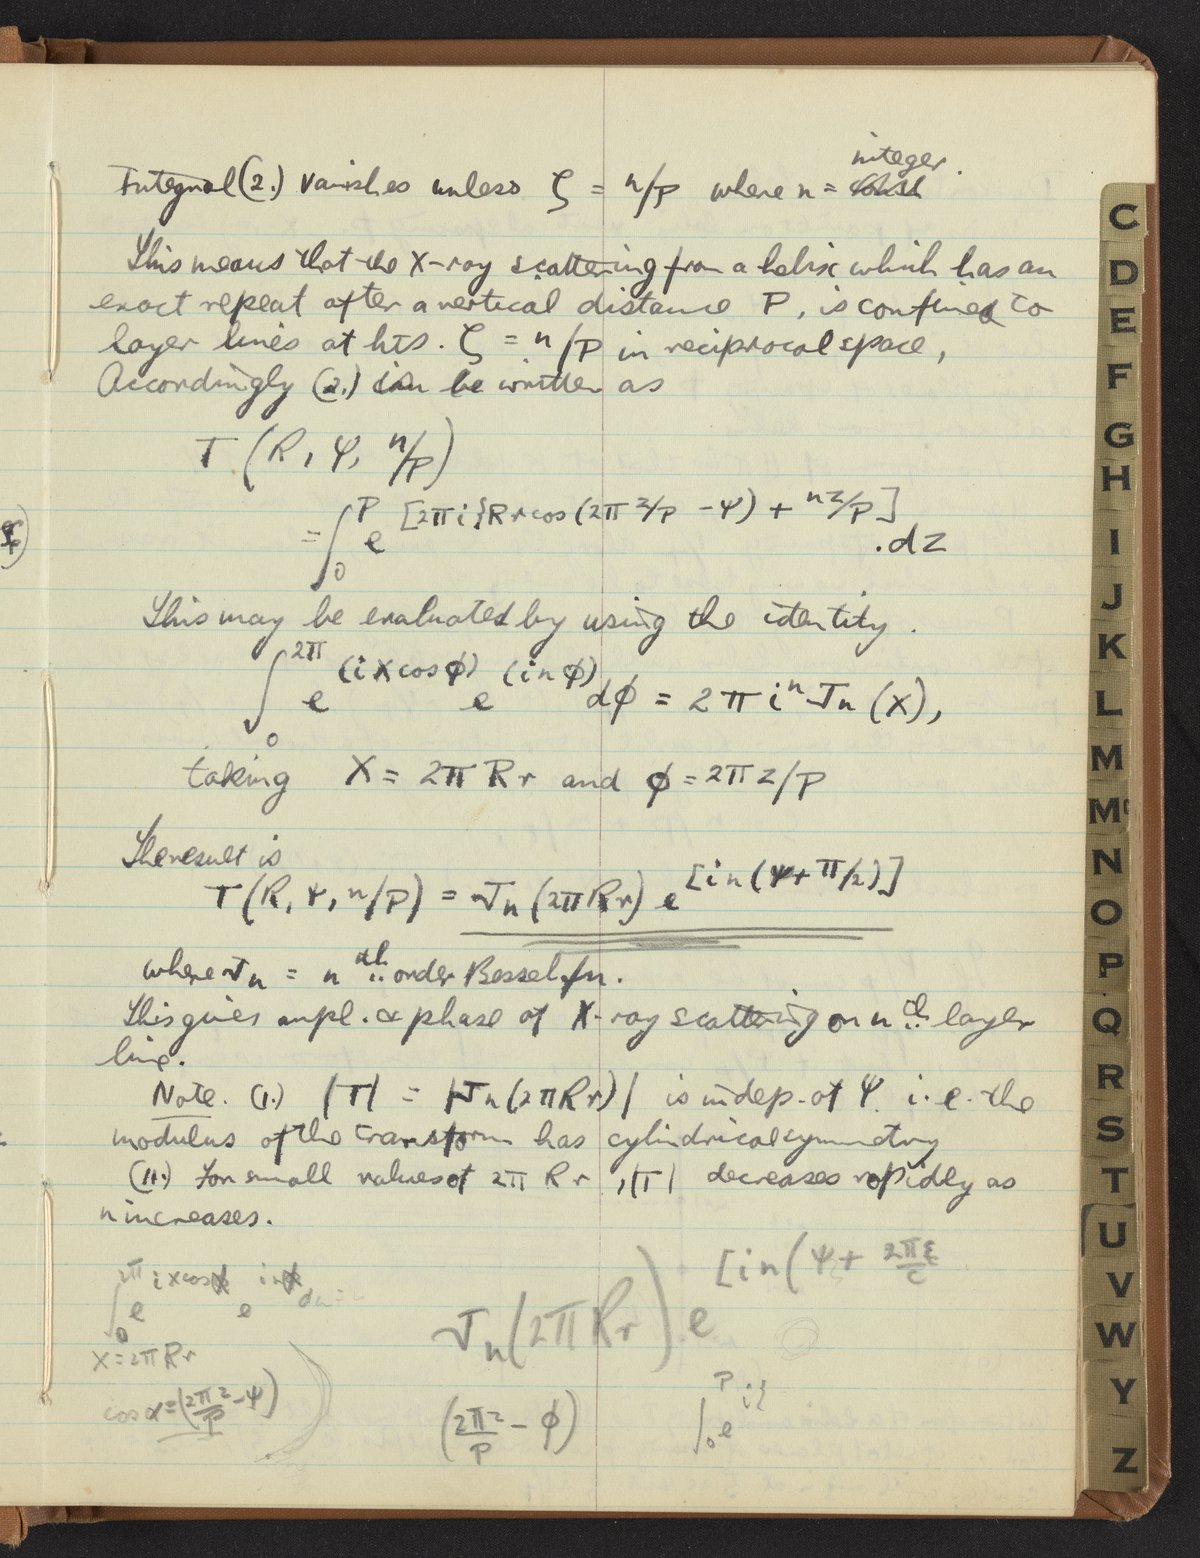 integer.
Integral (2.) vanishes unless ζ = n/P where n =
This means that the X-ray scattering from a helix which has an
exact repeat after a vertical distance P, is confined to
layer lines at hts. ζ = n/P in reciprocal space,
Accordingly (2.) can be written as
T (R, Ψ, n/P)
= ∫₀^P e^[2πi{Rr cos(2πz/P - Ψ) + nz/P] .dz
This may be evaluated by using the identity.
∫₀^2π e^(iX cos φ) e^(inφ) dφ = 2π iⁿ Jn (X),
taking X = 2π Rr and φ = 2πz/P
The result is
T(R, Ψ, n/P) = Jn (2πRr) e^[in(Ψ + π/2)]
where Jn = nth order Bessel fn.
This gives ampl. & phase of X-ray scattering on nth layer
line.
Note. (I.) |T| = |Jn (2πRr)| is indep. of Ψ. i.e. the
modulus of the transform has cylindrical symmetry
(II.) For small values of 2π Rr, |T| decreases rapidly as
n increases.
∫₀^2π e^ix cos e^in
X = 2π Rr
cos α = (2πz/P - Ψ)
Jn (2πRr) e^[in(Ψ + 2πξ/c
(2πz/P - φ)
∫₀^P e^i{
C
D
E
F
G
H
I
J
K
L
M
Mc
N
O
P
Q
R
S
T
U
V
W
Y
Z